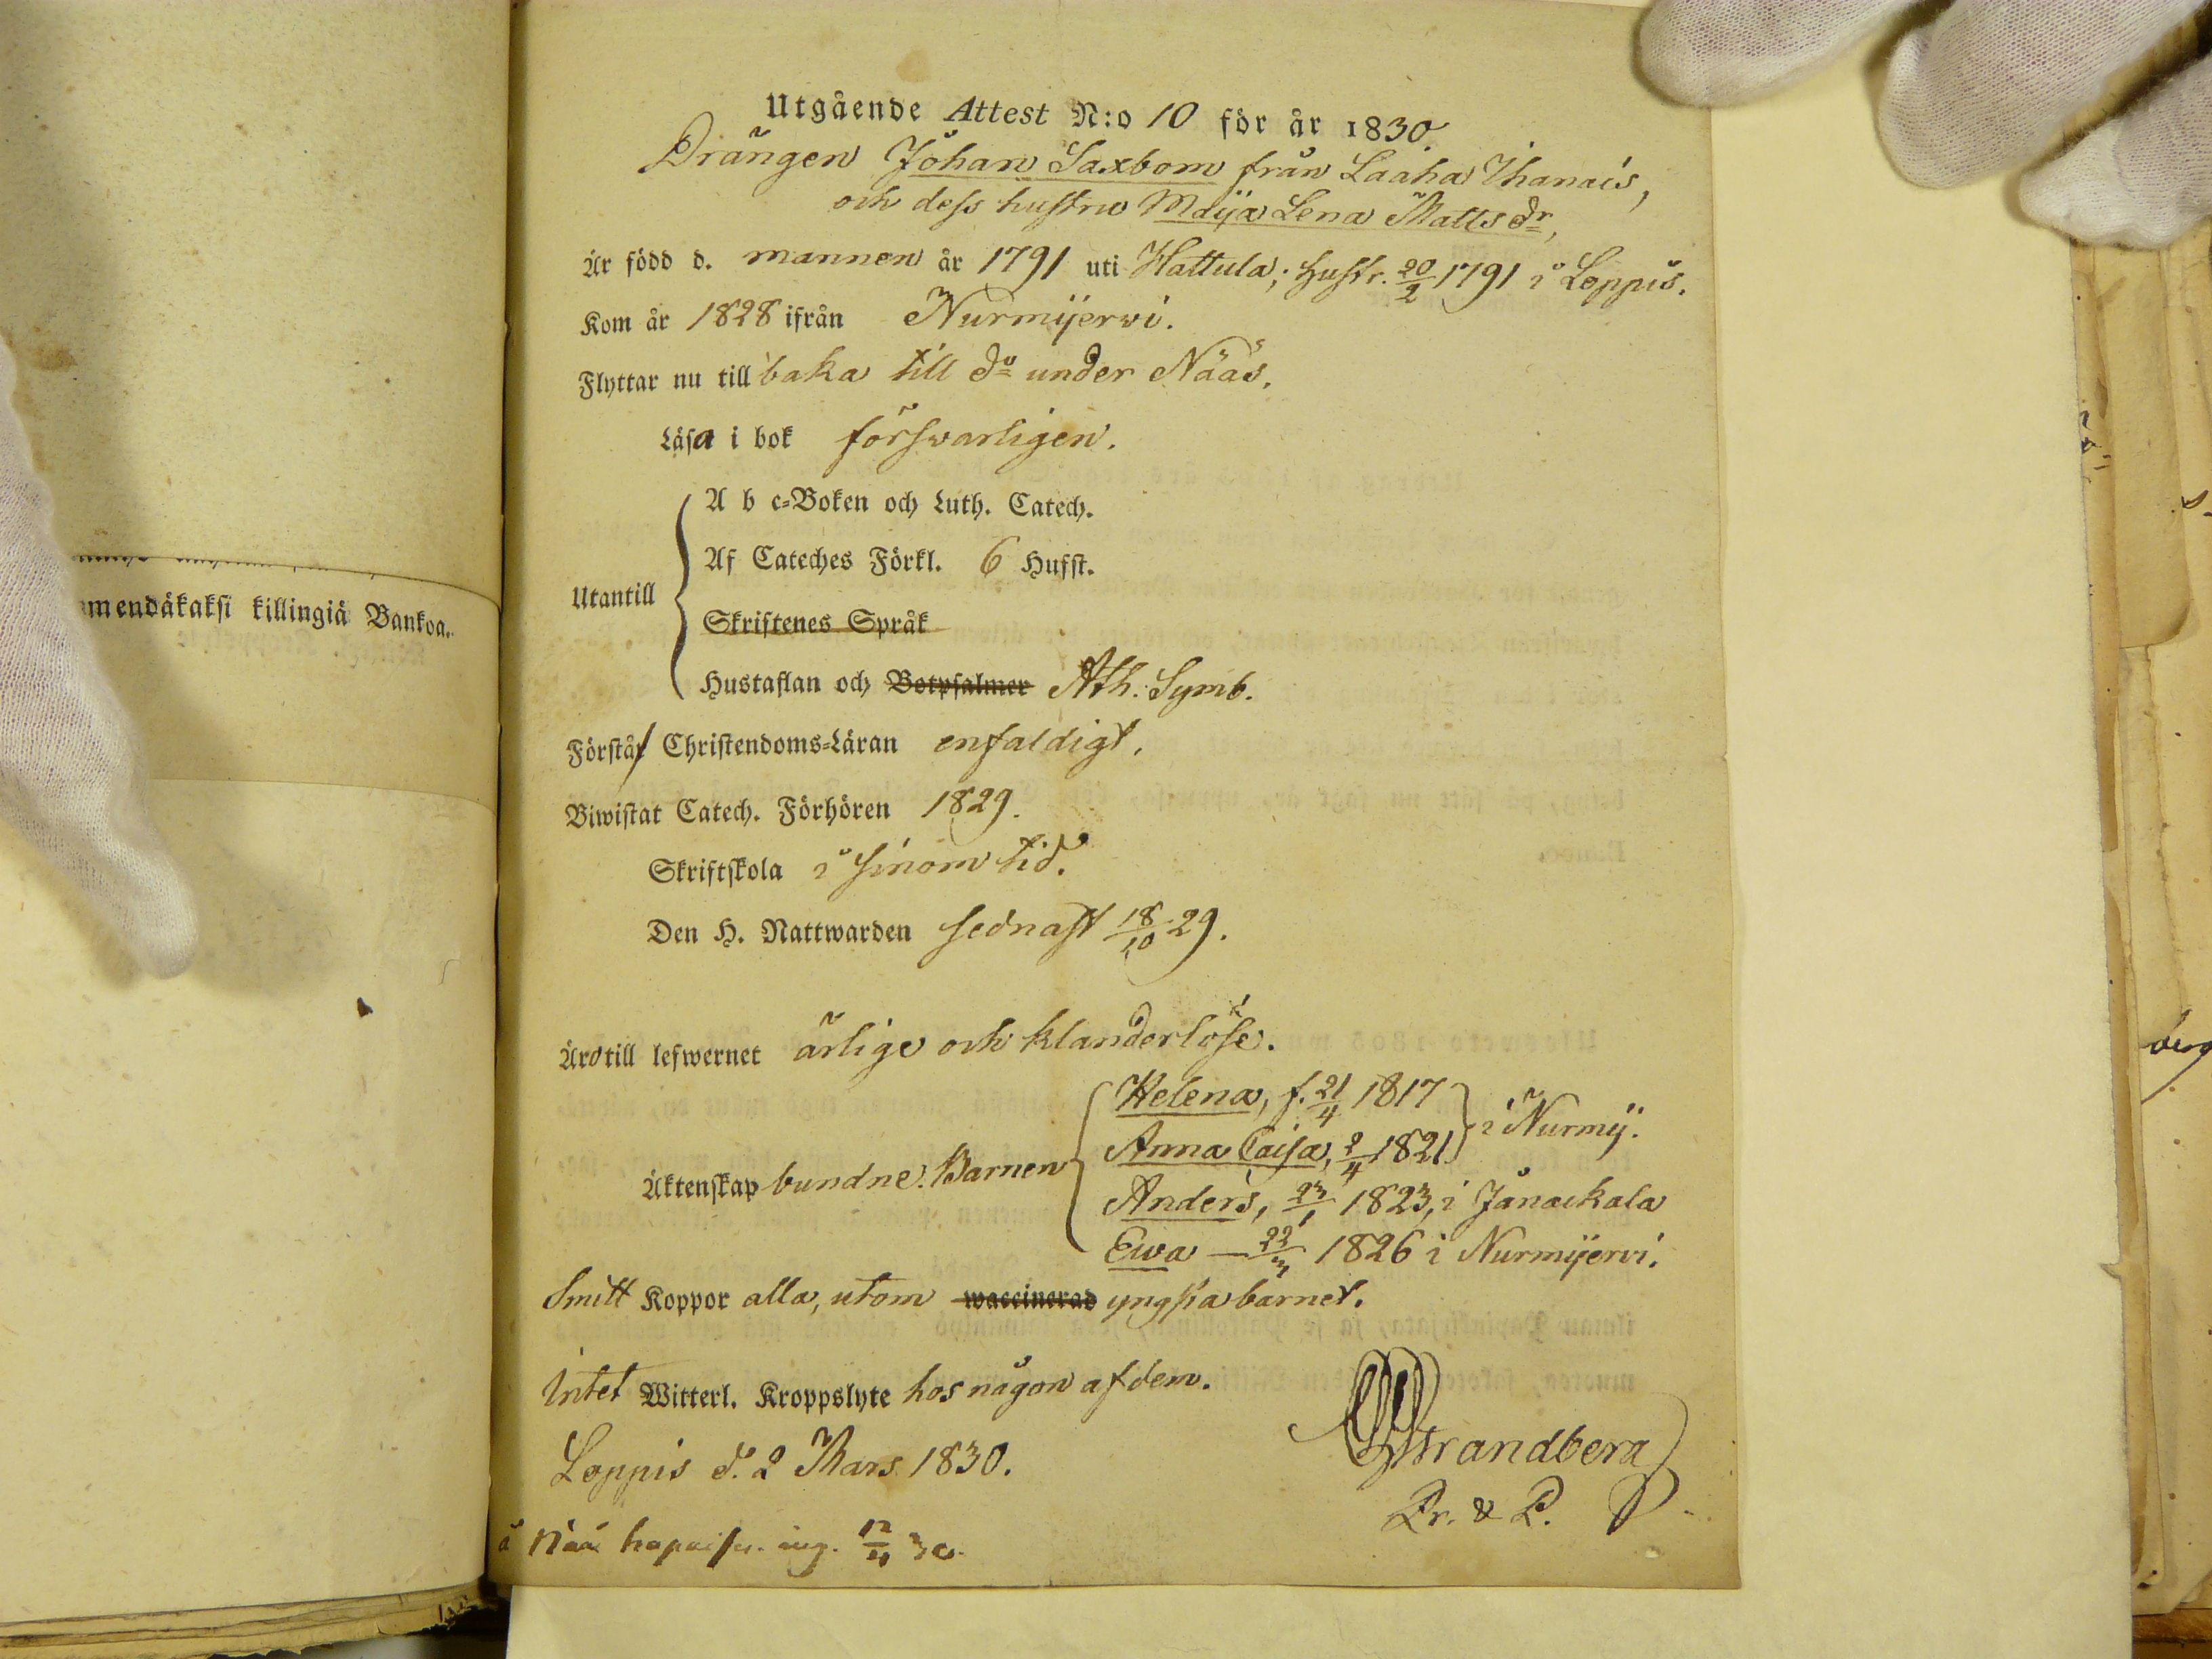 mmendäkaksi killingiä Bankoa.
Utgående Attest N:o 10 för år 1830.
Drängen Johan Saxbom från Laaha Ihanais,
och dess hustru Maija Lena Matts dr,
Är född d. mannen år 1791 uti Hattula; hustr. 20/2 1791 i Loppis.
Kom år 1828 ifrån Nurmijerwi.
Flyttar nu till baka till do under Nääs.
Läsa i bok försvarligen.
A b c-Boken och Luth. Catech.
Af Cateches Förkl. 6 Hufst.
Utantill
Skriftenes Språk
Hustaflan och Botpsalmer Ath. Symb.
Förstå Christendoms-Läran enfaldigt.
Biwistat Catech. Förhören 1829.
Skriftskola i sinom tid.
Den H. Nattwarden sednast 18/10 29.
Äro till lefwernet ärlige och klanderlöse.
Helena, f. 21/4 1817
Anna Caisa, 2/4 1821 i Nurmij.
Äktenskap bundne. Barnen
Anders, 23/1 1823, i Janackala
Ewa — 22/3 1826 i Nurmijervi.
Smitt Koppor alla, utom waccinerad yngsta barnet.
Intet Witterl. Kroppslyte hos någon af dem.
Loppis d. 2 Mars 1830.
Strandberg
Pr. & P.
å Nääs 12/4 30.